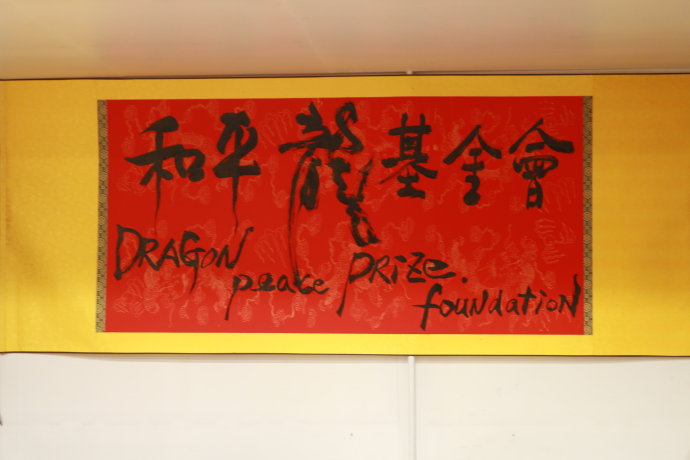 和平龍基金會
DRAGON peace PRize.
foundatioN